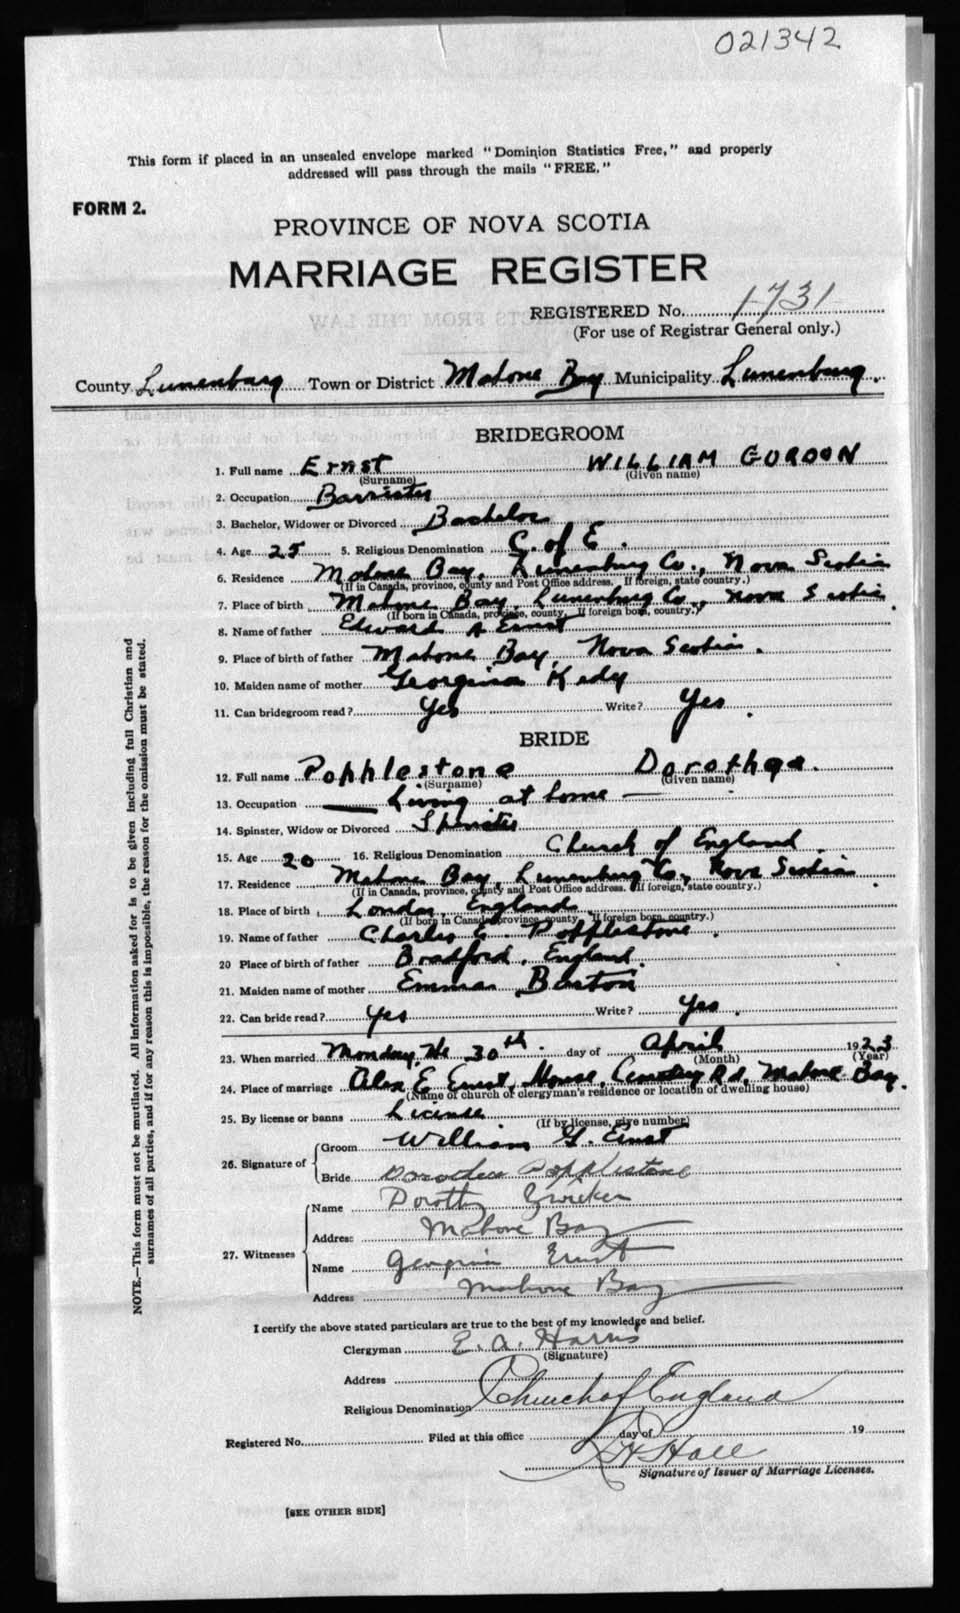 021342
This form if placed in an unsealed envelope marked "Dominion Statistics Free," and properly
addressed will pass through the mails "FREE."
FORM 2.
PROVINCE OF NOVA SCOTIA
MARRIAGE REGISTER
REGISTERED No. 1731
(For use of Registrar General only.)
County Lunenburg Town or District Mahone Bay Municipality Lunenburg.
BRIDEGROOM
1. Full name Ernst WILLIAM GORDON
(Surname) (Given name)
2. Occupation Barrister
3. Bachelor, Widower or Divorced Bachelor
4. Age 25 5. Religious Denomination C. of E.
6. Residence Mahone Bay, Lunenburg Co., Nova Scotia
(If in Canada, province, county and Post Office address. If foreign, state country.)
7. Place of birth Mahone Bay, Lunenburg Co., Nova Scotia.
(If born in Canada, province, county. If foreign born, country.)
8. Name of father Edward A Ernst
9. Place of birth of father Mahone Bay, Nova Scotia.
10. Maiden name of mother Georginia Kedy
11. Can bridegroom read? Yes Write? Yes.
BRIDE
12. Full name Popplestone Dorothea.
(Surname) (Given name)
13. Occupation — Living at home —
14. Spinster, Widow or Divorced Spinster
15. Age 20 16. Religious Denomination Church of England.
17. Residence Mahone Bay, Lunenburg Co., Nova Scotia.
(If in Canada, province, county and Post Office address. If foreign, state country.)
18. Place of birth London, England
(If born in Canada, province, county. If foreign born, country.)
19. Name of father Charles E. Popplestone.
20 Place of birth of father Bradford, England.
21. Maiden name of mother Emma Barton
22. Can bride read? Yes Write? Yes.
23. When married Monday, the 30th. day of April 1923
(Month) (Year)
24. Place of marriage Alex E Ernst, House, Rd, Mahone Bay.
(Name of church or clergyman's residence or location of dwelling house)
25. By license or banns License
(If by license, give number)
26. Signature of Groom William G. Ernst
Bride Dorothea Popplestone
27. Witnesses Name Dorothy Zwicker
Address Mahone Bay
Name Georginia Ernst
Address Mahone Bay
I certify the above stated particulars are true to the best of my knowledge and belief.
Clergyman E. A. Harris
(Signature)
Address
Religious Denomination Church of England
Registered No. Filed at this office day of 19
Hall
Signature of Issuer of Marriage Licenses.
[SEE OTHER SIDE]
NOTE.—This form must not be mutilated. All information asked for is to be given including full Christian and
surnames of all parties, and if for any reason this is impossible, the reason for the omission must be stated.